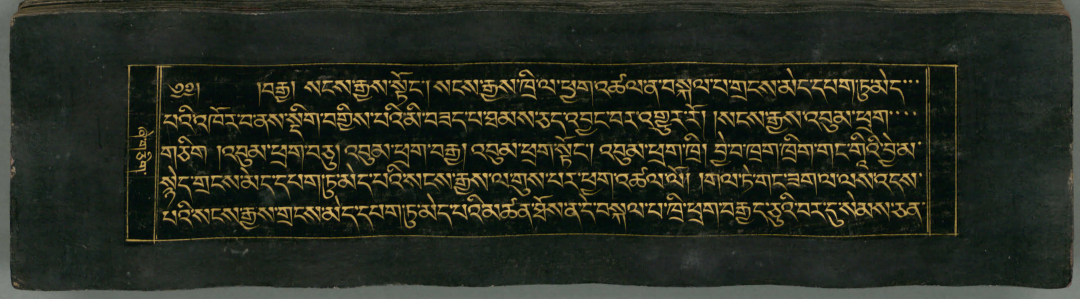 ༄༅། །བརྒྱ། སངས་རྒྱས་སྟོང་། སངས་རྒྱས་ཁྲི་ལ་ཕྱག་འཚལ་ན་བསྐལ་པ་གྲངས་མེད་དཔག་ཏུ་མེད་
པའི་འཁོར་བ་ནས་སྡིག་བགྱིས་པའི་མི་བཟད་པ་ཐམས་ཅད་འབྱང་བར་འགྱུར་རོ། །སངས་རྒྱས་འབུམ་ཕྲག་
གཅིག །འབུམ་ཕྲག་བཅུ། འབུམ་ཕྲག་བརྒྱ། འབུམ་ཕྲག་སྟོང་། འབུམ་ཕྲག་ཁྲི། བྱེ་བ་ཁྲག་ཁྲིག་གང་གཱའི་བྱེ་མ་
སྙེད་གྲངས་མེད་དཔག་ཏུ་མེད་པའི་སངས་རྒྱས་ལ་གུས་པར་ཕྱག་འཚལ་ལོ། །གལ་ཏེ་གང་ཟག་ལ་ལས་འདས་
པའི་སངས་རྒྱས་གྲངས་མེད་དཔག་ཏུ་མེད་པའི་མཚན་ཐོས་ན་དེ་བསྐལ་པ་ཁྲི་ཕྲག་བརྒྱད་ཅུའི་བར་དུ་སེམས་ཅན་